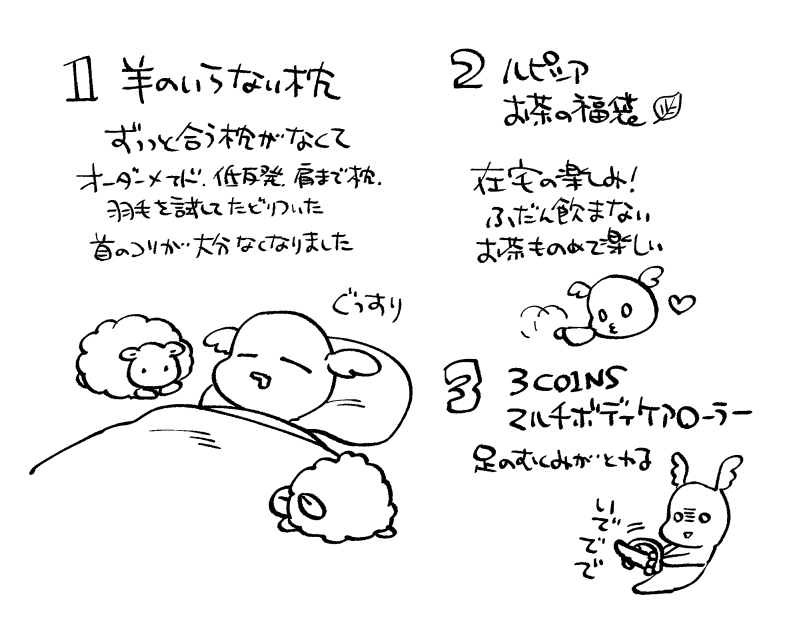 1 羊のいらない枕
ずっと合う枕がなくて
オーダーメイド、低反発、肩まで枕、
羽毛を試してたどりついた
首のコリが大分なくなりました
ぐっすり
2 ルピシア
お茶の福袋
在宅の楽しみ!
ふだん飲まない
お茶ものめて楽しい
3 3COINS
マルチボディケアローラー
足のむくみがとれる
いででで